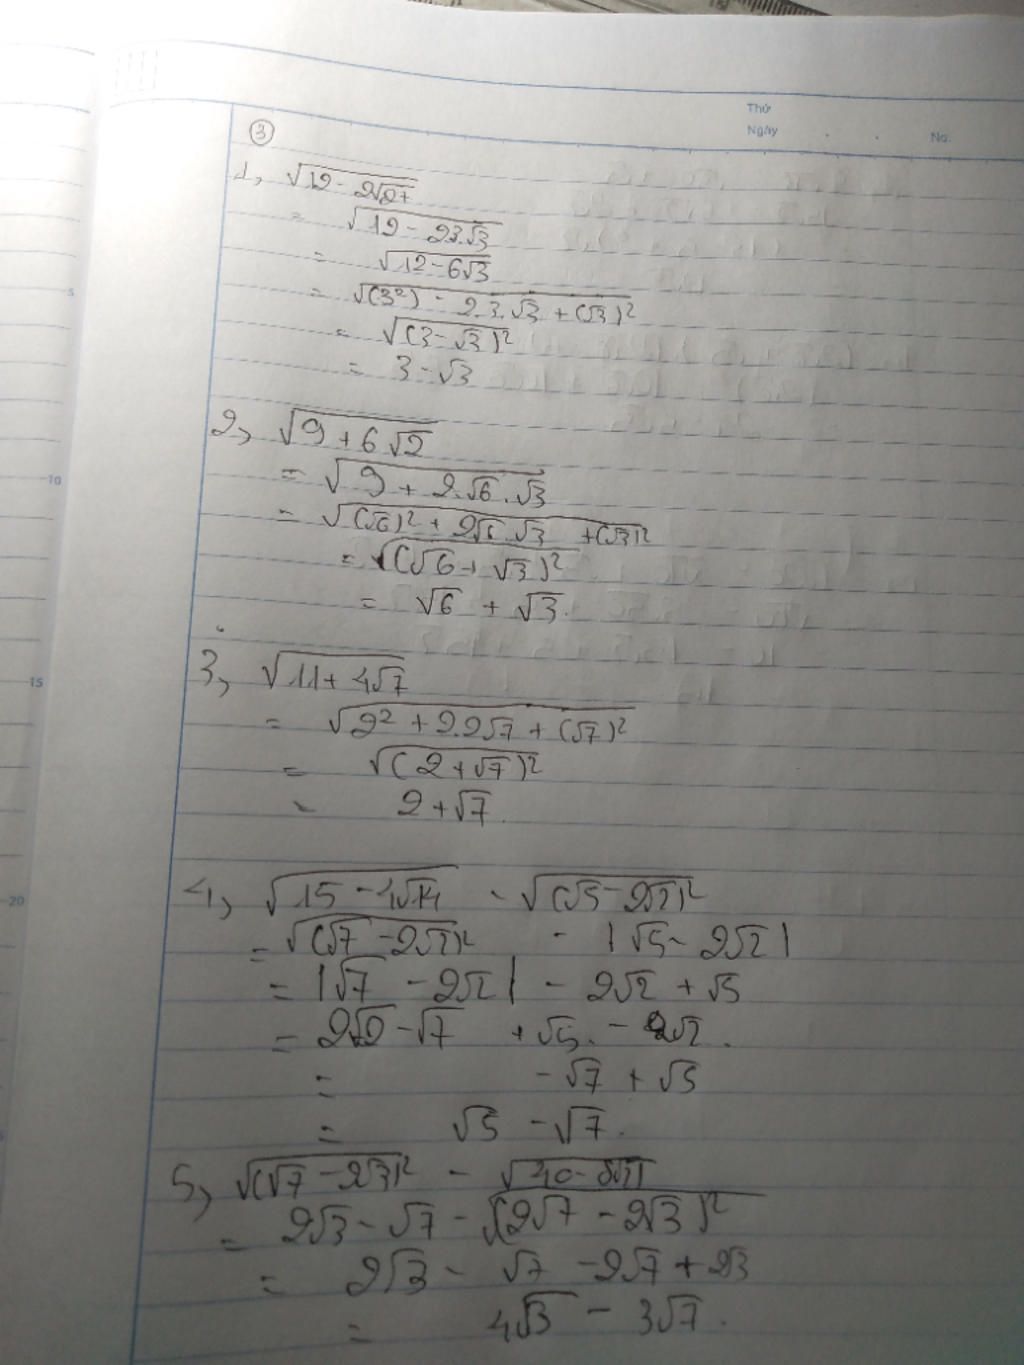 Thứ
Ngày No.
③
1, √(12 - 2√27)
= √(12 - 2.3.√3)
= √(12 - 6√3)
= √((3²) - 2.3.√3 + (√3)²)
= √((3 - √3)²)
= 3 - √3
2, √(9 + 6√2)
= √(9 + 2.√6.√3)
= √((√6)² + 2√6.√3 + (√3)²)
= √((√6 + √3)²)
= √6 + √3.
3, √(11 + 4√7)
= √(2² + 2.2√7 + (√7)²)
= √((2 + √7)²)
= 2 + √7.
4, √(15 - 4√14) - √((√5 - 2√2)²)
= √((√7 - 2√2)²) - |√5 - 2√2|
= |√7 - 2√2| - 2√2 + √5
= 2√2 - √7 + √5. - 2√2.
= -√7 + √5
= √5 - √7.
5, √((√7 - 2√3)²) - √(40 - 8√21)
= 2√3 - √7 - √((2√7 - 2√3)²)
= 2√3 - √7 - 2√7 + 2√3
= 4√3 - 3√7.
5
10
15
20